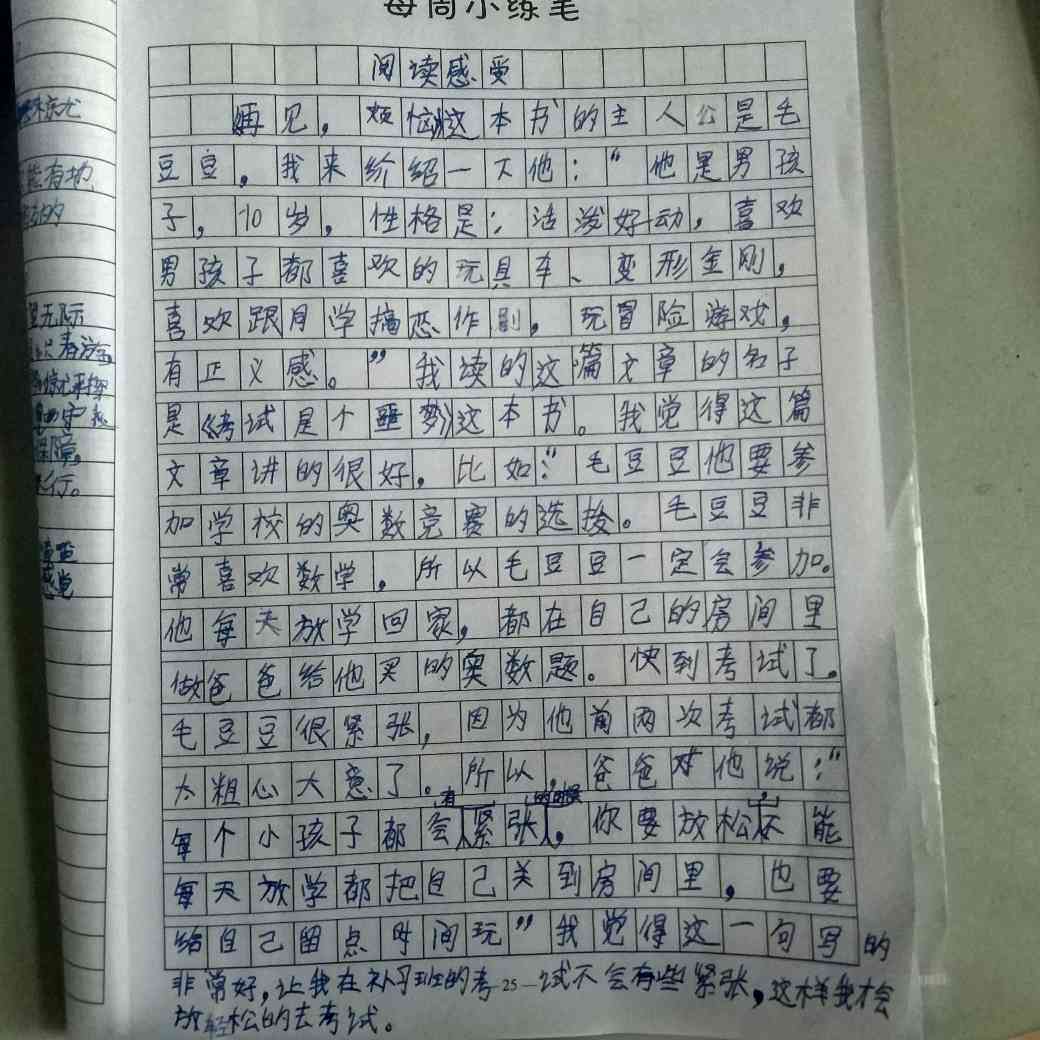 每周小练笔
阅读感受
再见，烦恼这本书的主人公是毛
豆豆。我来介绍一下他：“他是男孩
子，10岁，性格是：活泼好动，喜欢
男孩子都喜欢的玩具车、变形金刚，
喜欢跟同学搞恶作剧，玩冒险游戏，
有正义感。”我读的这篇文章的名子
是《考试是个噩梦》这本书。我觉得这篇
文章讲的很好。比如：“毛豆豆他要参
加学校的奥数竞赛的选拨。毛豆豆非
常喜欢数学，所以毛豆豆一定会参加。
他每天放学回家，都在自己的房间里
做爸爸给他买的奥数题。快到考试了。
毛豆豆很紧张，因为他前两次考试都
太粗心大意了。所以，爸爸对他说：“
每个小孩子都会有紧张的时候，你要放松，不能
每天放学都把自己关到房间里，也要
给自己留点时间玩”我觉得这一句写的
非常好，让我在补习班的考试不会有些紧张，这样我才会
放轻松的去考试。
25